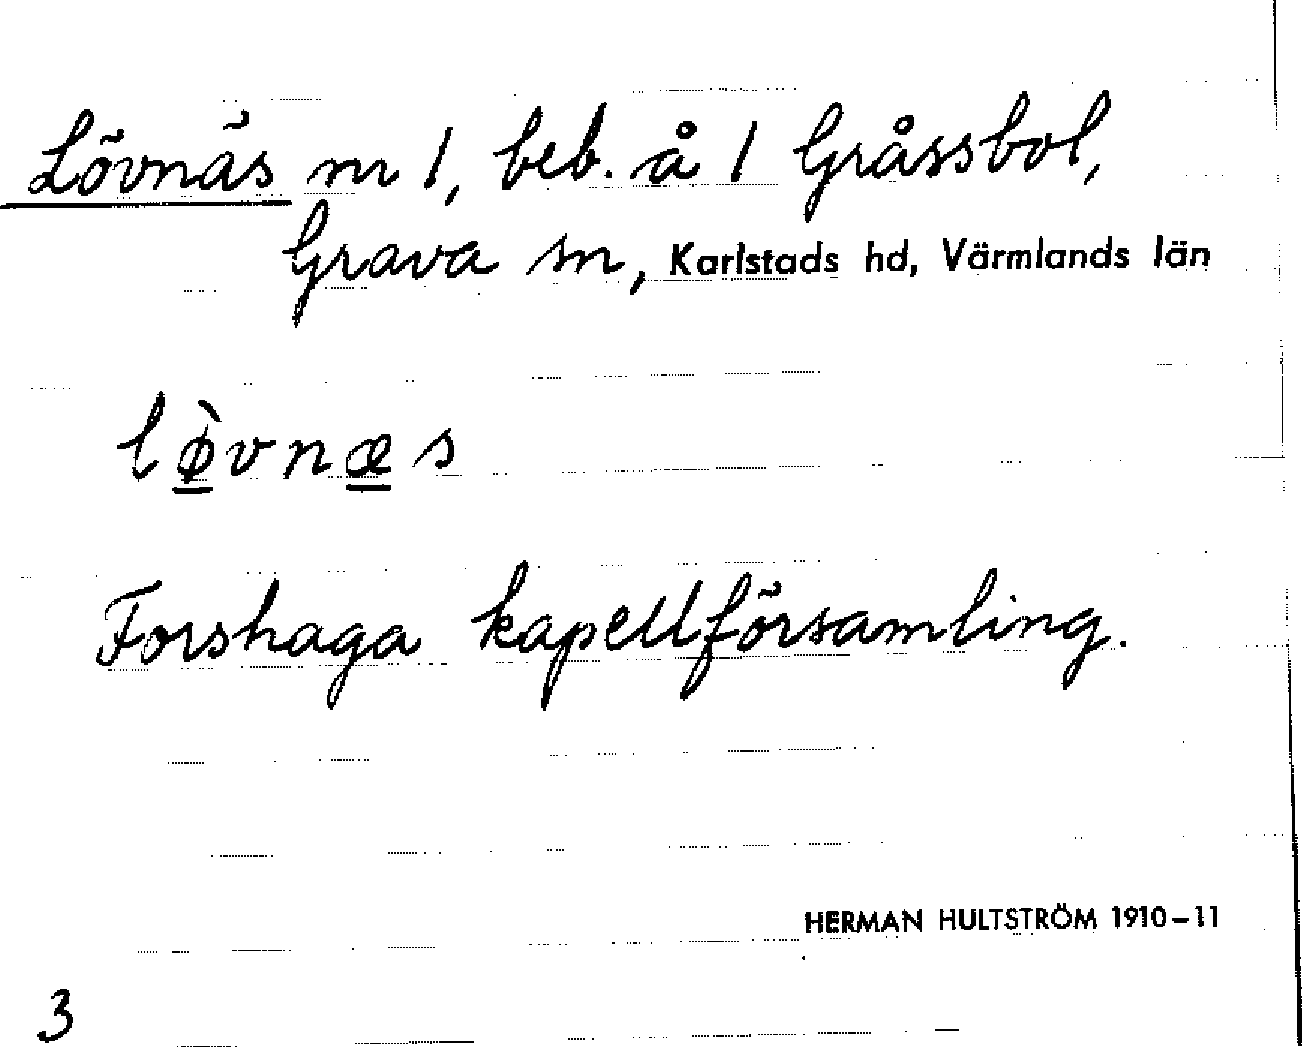 Lövnäs m 1, beb. å 1 Gråssbol,
Grava sn, Karlstads hd, Värmlands län
lø̀vnæs
Forshaga kapellförsamling.
HERMAN HULTSTRÖM 1910-11
3